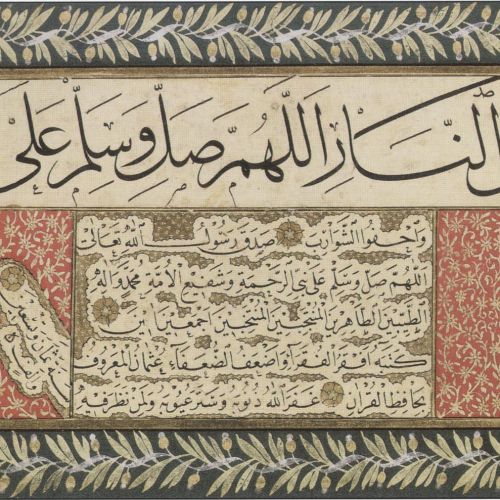 النار اللهم صل وسلم على
واحفوا الشوارب صدق رسول الله تعالى
اللهم صل وسلم على نبي الرحمة وشفيع الأمة محمد وآله
الطيبين الطاهرين المنتجبين اجمعين
كتبه افقر الفقراء واضعف الضعفاء عثمان المعروف
بحافظ القرآن غفر الله ذنوبه وستر عيوبه ولمن نظر فيه